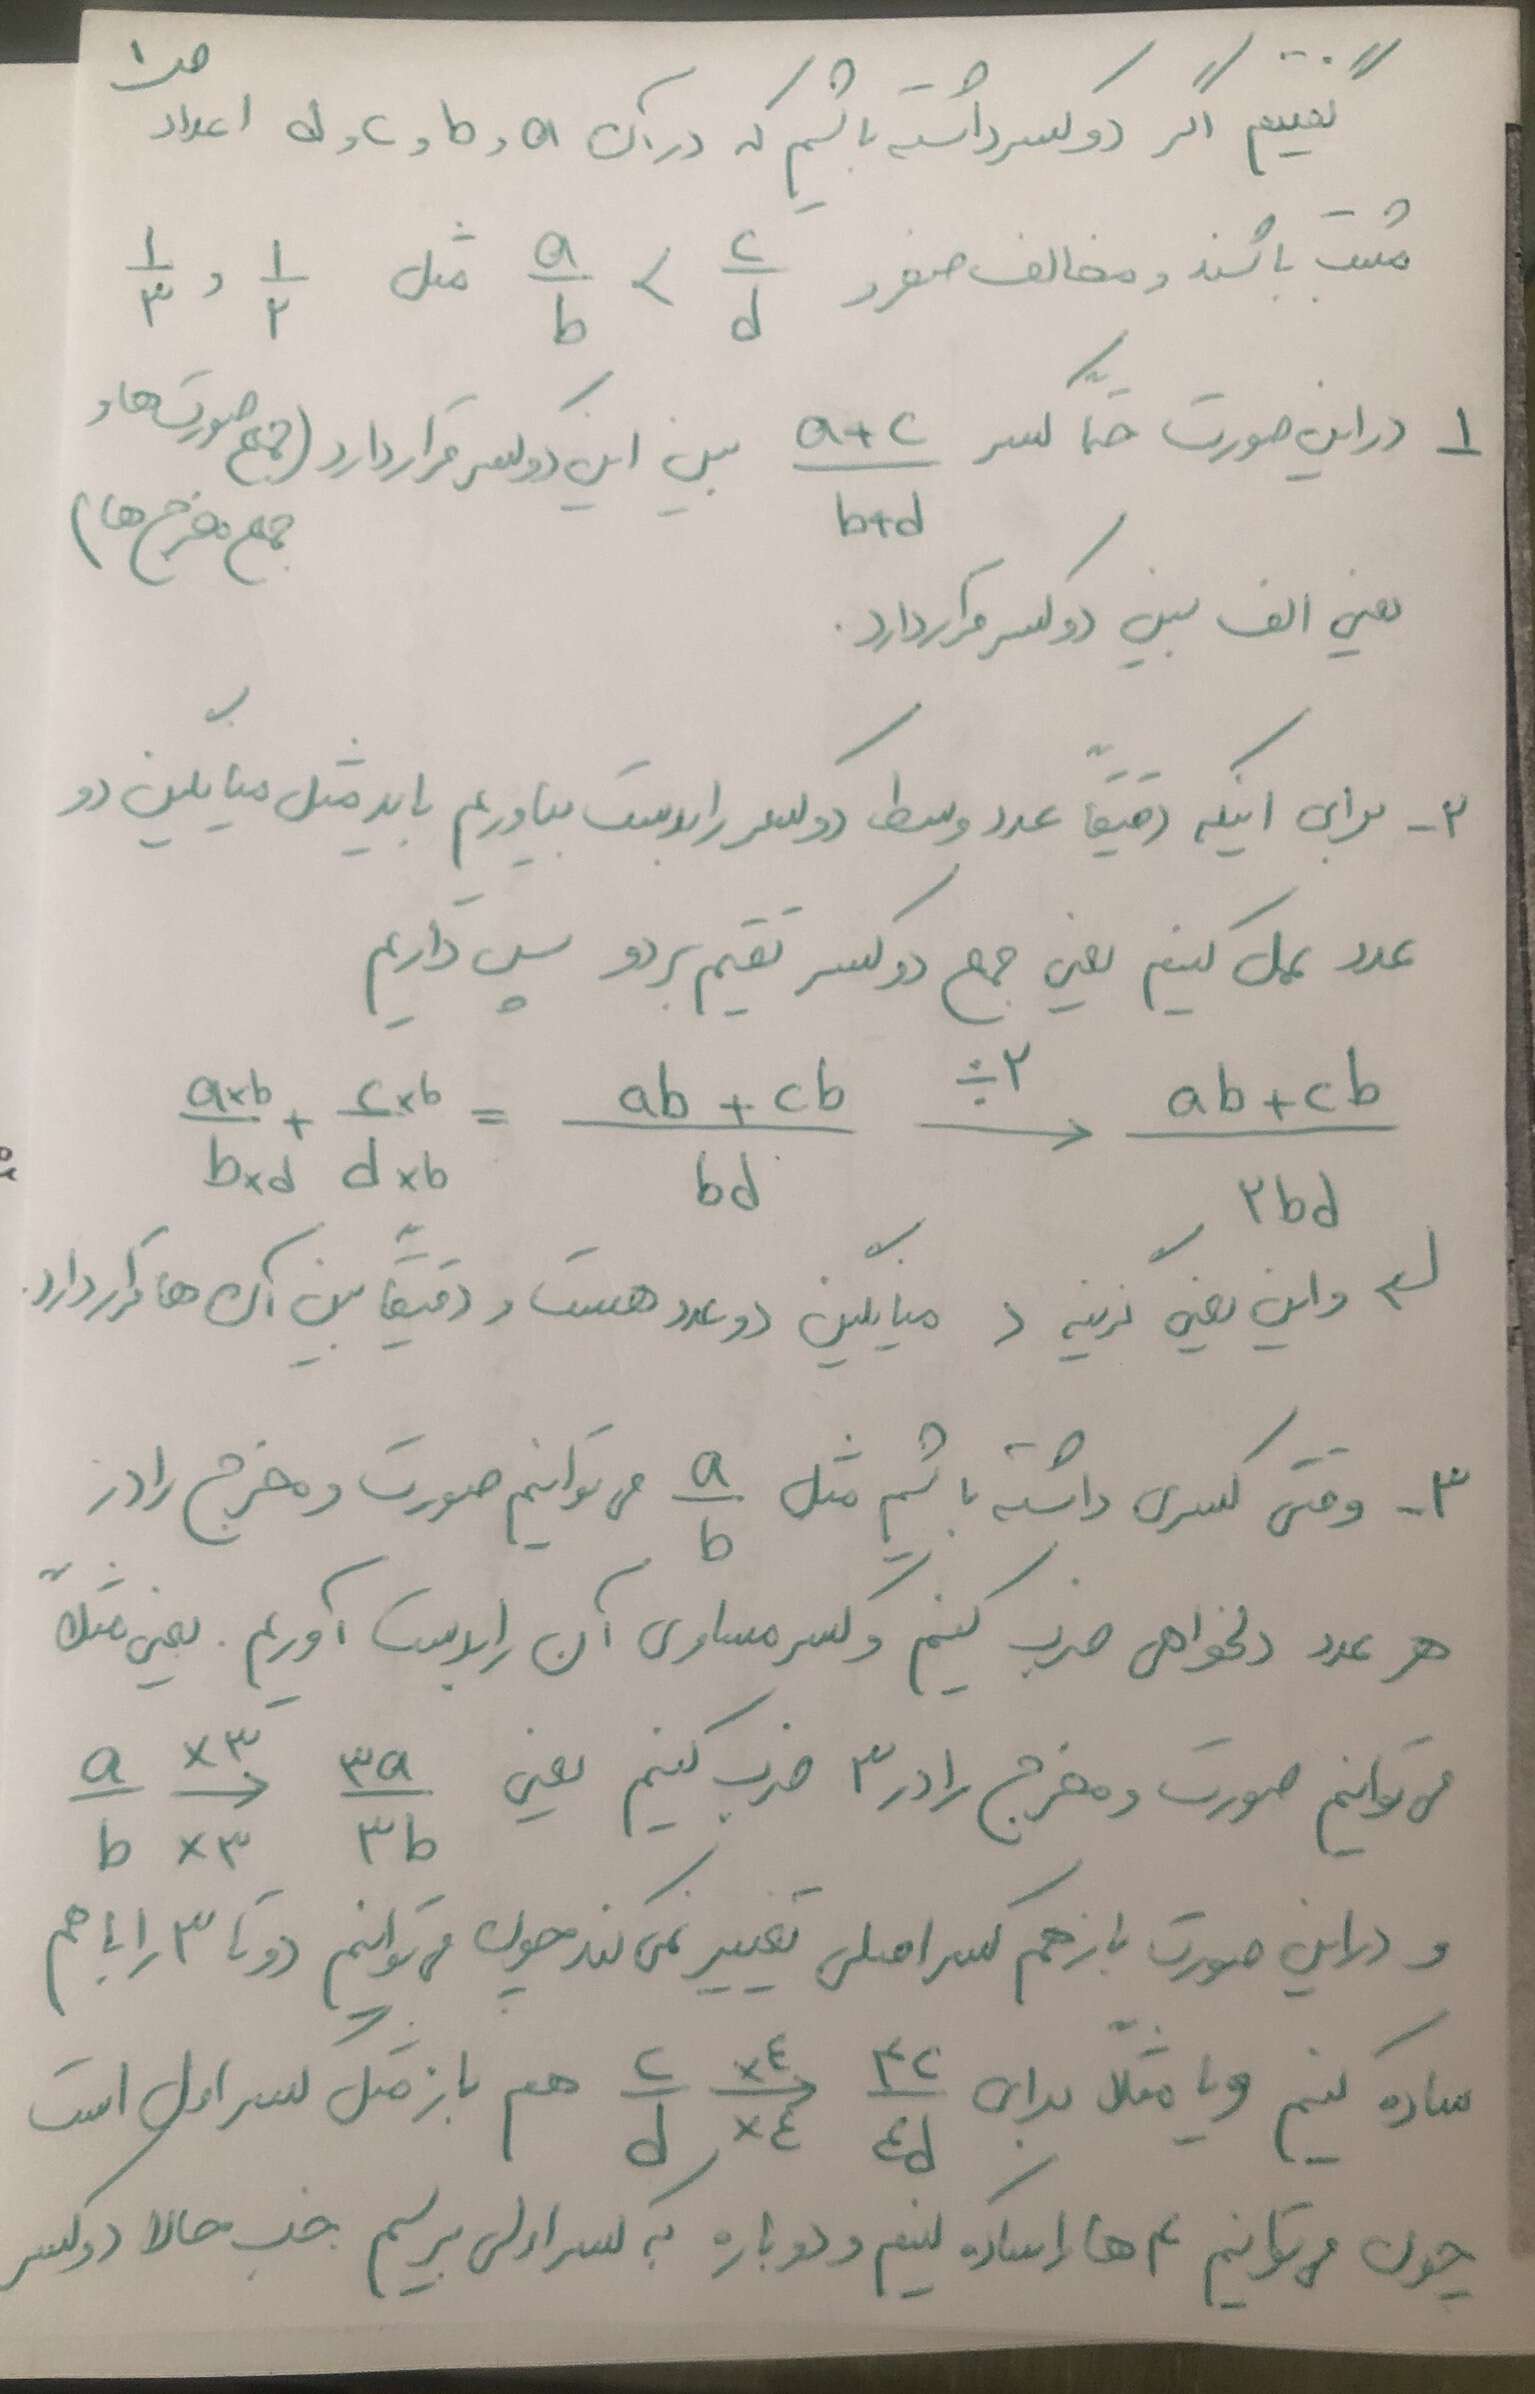 ص ۱
گفتیم اگر دو کسر داشته باشیم که در آن a و b و c و d اعداد
مثبت باشند و مخالف صفر و c/d > a/b مثل ۱/۲ و ۱/۳
۱ـ در این صورت حتماً کسر a+c/b+d بین این دو کسر قرار دارد (جمع صورت‌ها و
جمع مخرج‌ها)
یعنی الف بین دو کسر قرار دارد.
۲ـ برای اینکه دقیقاً عدد وسط دو کسر را بدست بیاوریم باید مثل میانگین دو
عدد عمل کنیم یعنی جمع دو کسر تقسیم بر دو پس داریم
a×b/b×d + c×b/d×b = ab + cb/bd ÷۲ → ab + cb/۲bd
و این یعنی گزینه د میانگین دو عدد هست و دقیقاً بین آن ها قرار دارد.
۳ـ وقتی کسری داشته باشیم مثل a/b می توانیم صورت و مخرج را در
هر عدد دلخواهی ضرب کنیم و کسر مساوی آن را بدست آوریم. یعنی مثلاً
می توانیم صورت و مخرج را در ۳ ضرب کنیم یعنی a/b ×۳/×۳ → ۳a/۳b
و در این صورت باز هم کسر اصلی تغییر نمی کند چون می توانیم دو تا ۳ را با هم
ساده کنیم و یا مثلاً برای c/d ×٤/×٤ → ۴c/٤d هم باز مثل کسر اول است
چون می توانیم ۴ ها را ساده کنیم و دوباره به کسر اولی برسیم خب حالا دو کسر